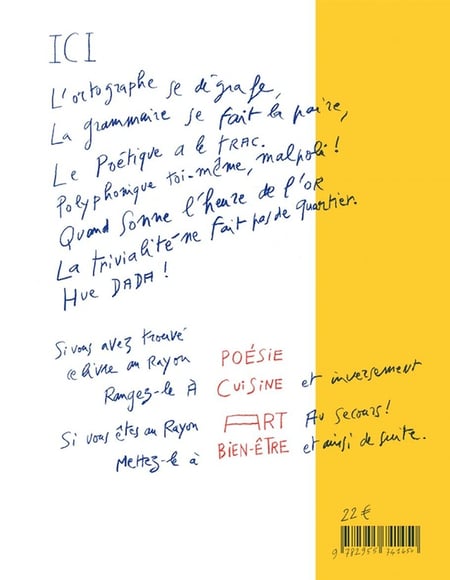 ICI
L'ortographe se dégrafe,
La grammaire se fait la paire,
Le Poétique a le TRAC.
Polyphonique toi-même, malpoli !
Quand Sonne l'heure de l'OR
La trivialité ne fait pas de quartier.
Hue DADA !
Si vous avez trouvé
ce livre au Rayon POÉSIE
Rangez-le À CUISINE et inversement
Si vous êtes au Rayon ART Au secours !
Mettez-le à BIEN-ÊTRE et ainsi de suite.
22 €
9 782955 741656